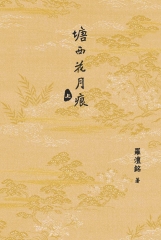 塘西花月痕
上
羅澧銘 著